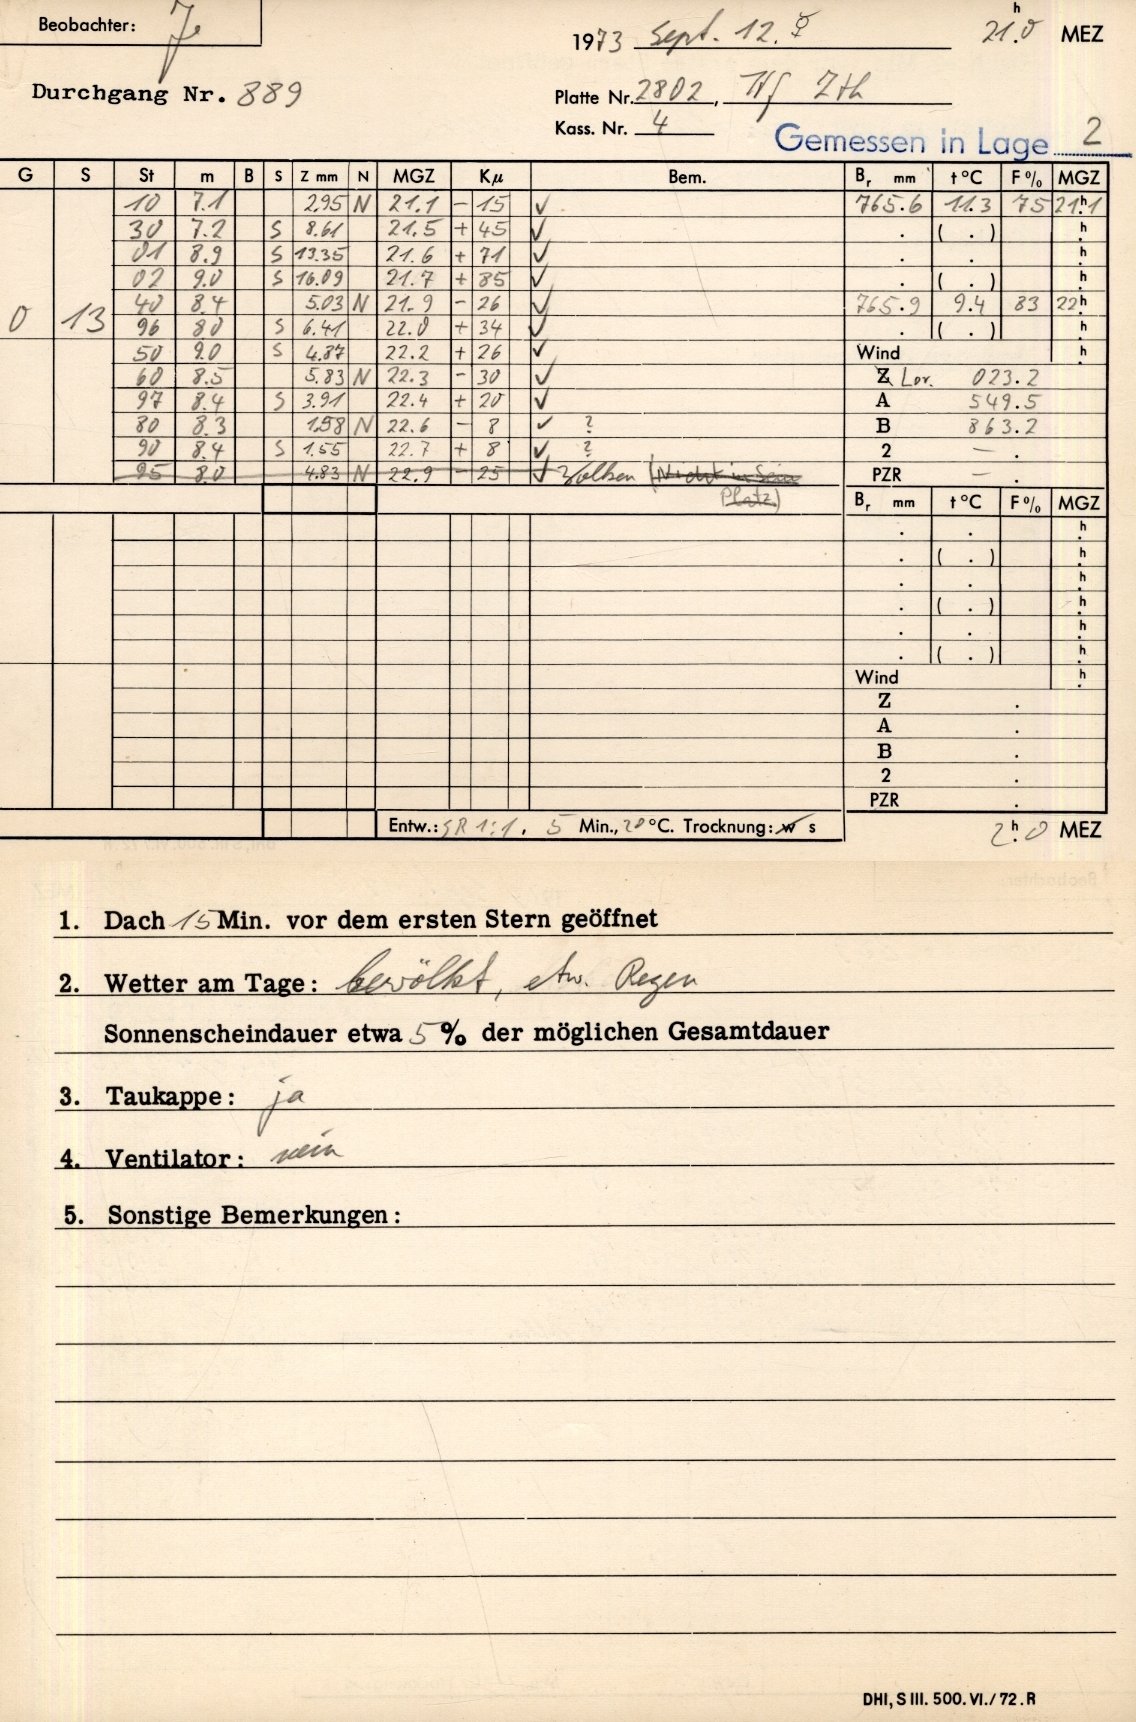 Beobachter: J.
1973 Sept. 12. ☿ 21.0 h MEZ
Durchgang Nr. 889
Platte Nr. 2802,
Kass. Nr. 4
Gemessen in Lage 2
G S St m B S Z mm N MGZ Kμ Bem. Br mm t °C F % MGZ
10 7.1 2.95 N 21.1 - 15 ✓ 765.6 11.3 75 21.1 h
30 7.2 S 8.61 21.5 + 45 ✓ . ( . ) h
01 8.9 S 13.35 21.6 + 71 ✓ . . h
02 9.0 S 16.09 21.7 + 85 ✓ . ( . ) h
0 13 40 8.4 5.03 N 21.9 - 26 ✓ 765.9 9.4 83 22. h
96 8.0 S 6.41 22.0 + 34 ✓ . ( . ) h
50 9.0 S 4.87 22.2 + 26 ✓ Wind h
60 8.5 5.83 N 22.3 - 30 ✓ Z Lor. 023.2
97 8.4 S 3.91 22.4 + 20 ✓ A 549.5
80 8.3 1.58 N 22.6 - 8 ✓ ? B 863.2
90 8.4 S 1.55 22.7 + 8 ✓ ? 2 — .
95 8.0 4.83 N 22.9 - 25 ✓ Wolken (Nicht in Sein PZR — .
Platz)
Br mm t °C F % MGZ
. . h
. ( . ) h
. . h
. ( . ) h
. . h
. ( . ) h
Wind h
Z .
A .
B .
2 .
PZR .
Entw.: GR 1:1, 5 Min., 20 °C. Trocknung: w s
2.0 h MEZ
1. Dach 15 Min. vor dem ersten Stern geöffnet
2. Wetter am Tage: bewölkt, etw. Regen
Sonnenscheindauer etwa 5 % der möglichen Gesamtdauer
3. Taukappe: ja
4. Ventilator: nein
5. Sonstige Bemerkungen:
DHI, S III. 500. VI./72. R